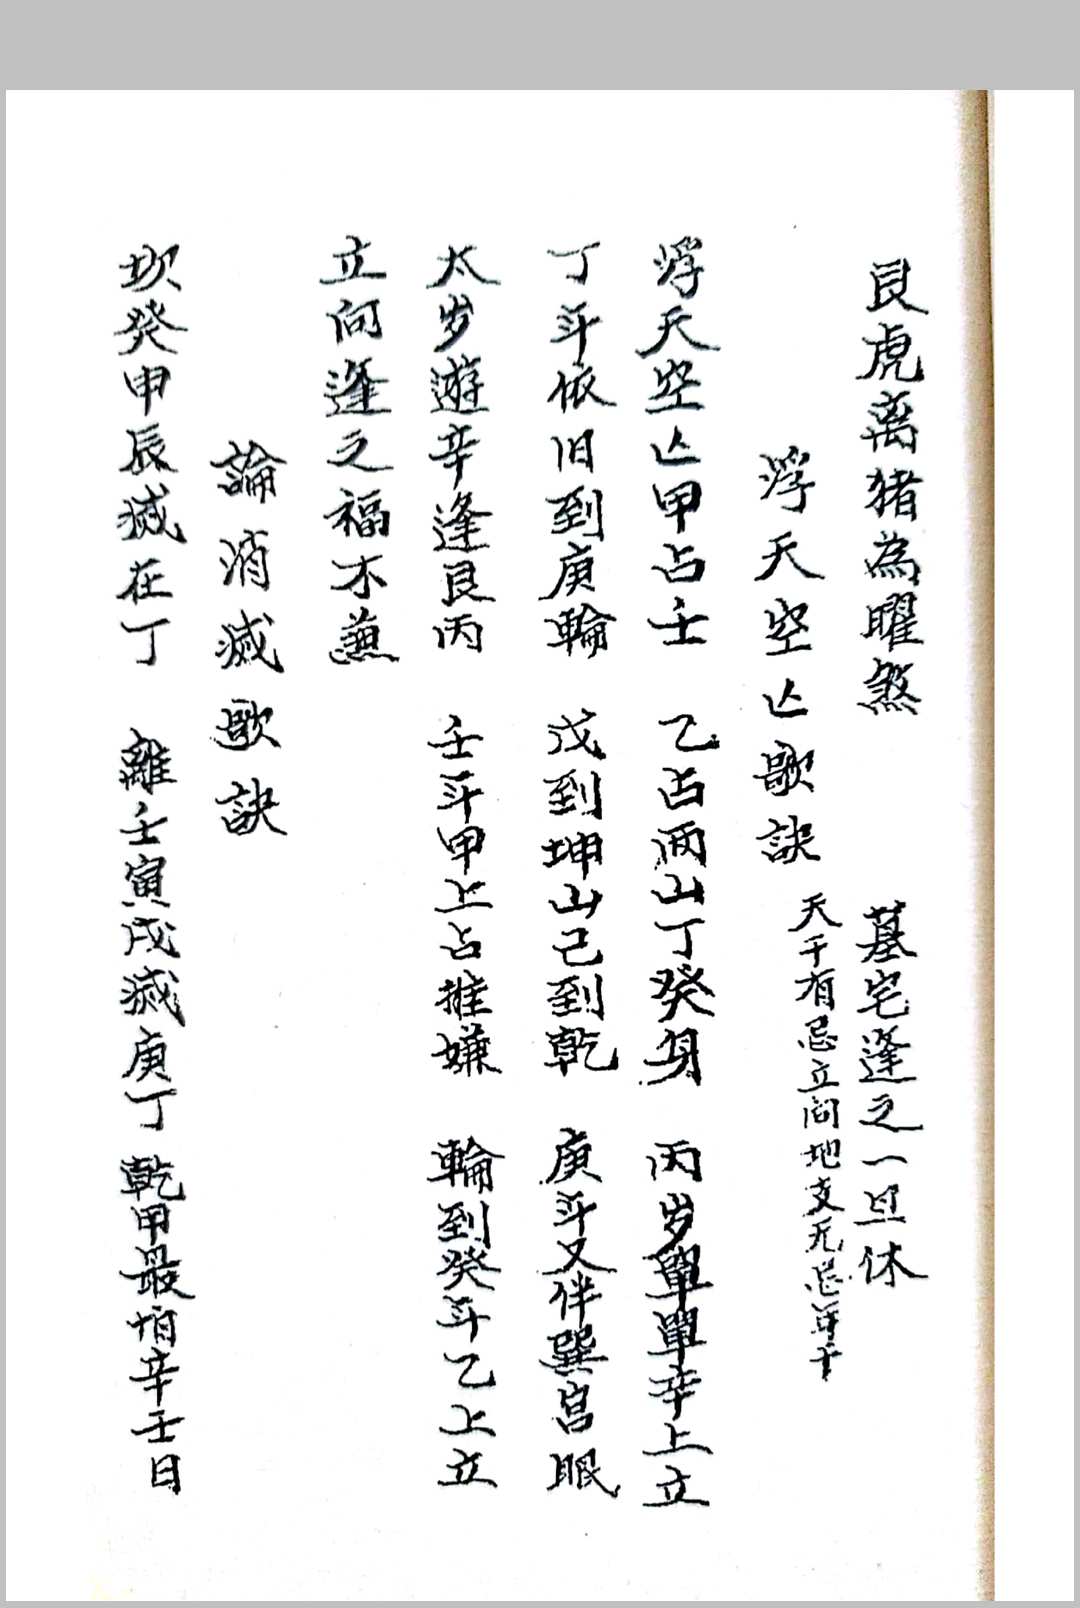 艮虎离猪為曜煞　墓宅逢之一旦休
浮天空亡歌訣　天干有忌立向地支无忌年十
浮天空亡甲占壬　乙占両山丁癸身　丙岁單單辛上立
丁斗依旧到庚輪　戊到坤山己到乾　庚斗又伴巽宮眠
太岁遊辛逢艮丙　壬斗甲上占推嫌　輪到癸斗乙上立
立向逢之福不蕉
論消滅歌訣
坎癸申辰滅在丁　離壬寅戌滅庚丁　乾甲最怕辛壬日